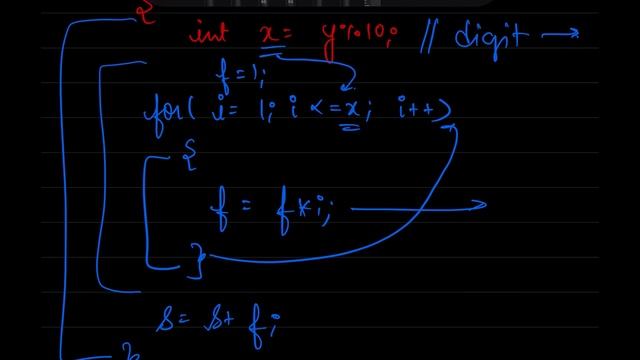 {
int x = y%10; // digit →
f=1;
for( i= 1; i <=x; i++)
{
f = f*i; →
}
s= s+ f;
}